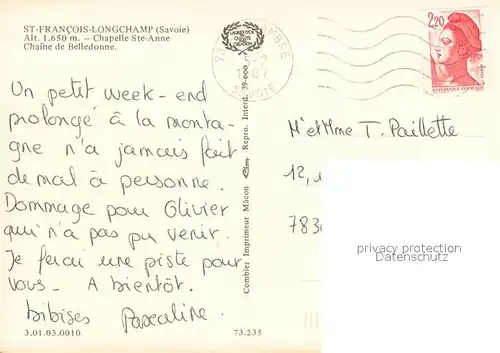 ST-FRANÇOIS-LONGCHAMP (Savoie)
Alt. 1.650 m. - Chapelle Ste-Anne
Chaîne de Belledonne.
Un petit week-end
prolongé à la monta-
gne n'a jamais fait
de mal à personne.
Dommage pour Olivier
qui n'a pas pu venir.
Je ferai une piste pour
vous - A bientôt.
bibises Pascaline.
3.01.03.0010
73.235
Combier Imprimeur Mâcon Repro. Interd. 39.000
SAVOIE
2,20
REPUBLIQUE FRANÇAISE
M et Mme T. Paillette
12,
783
privacy protection
Datenschutz